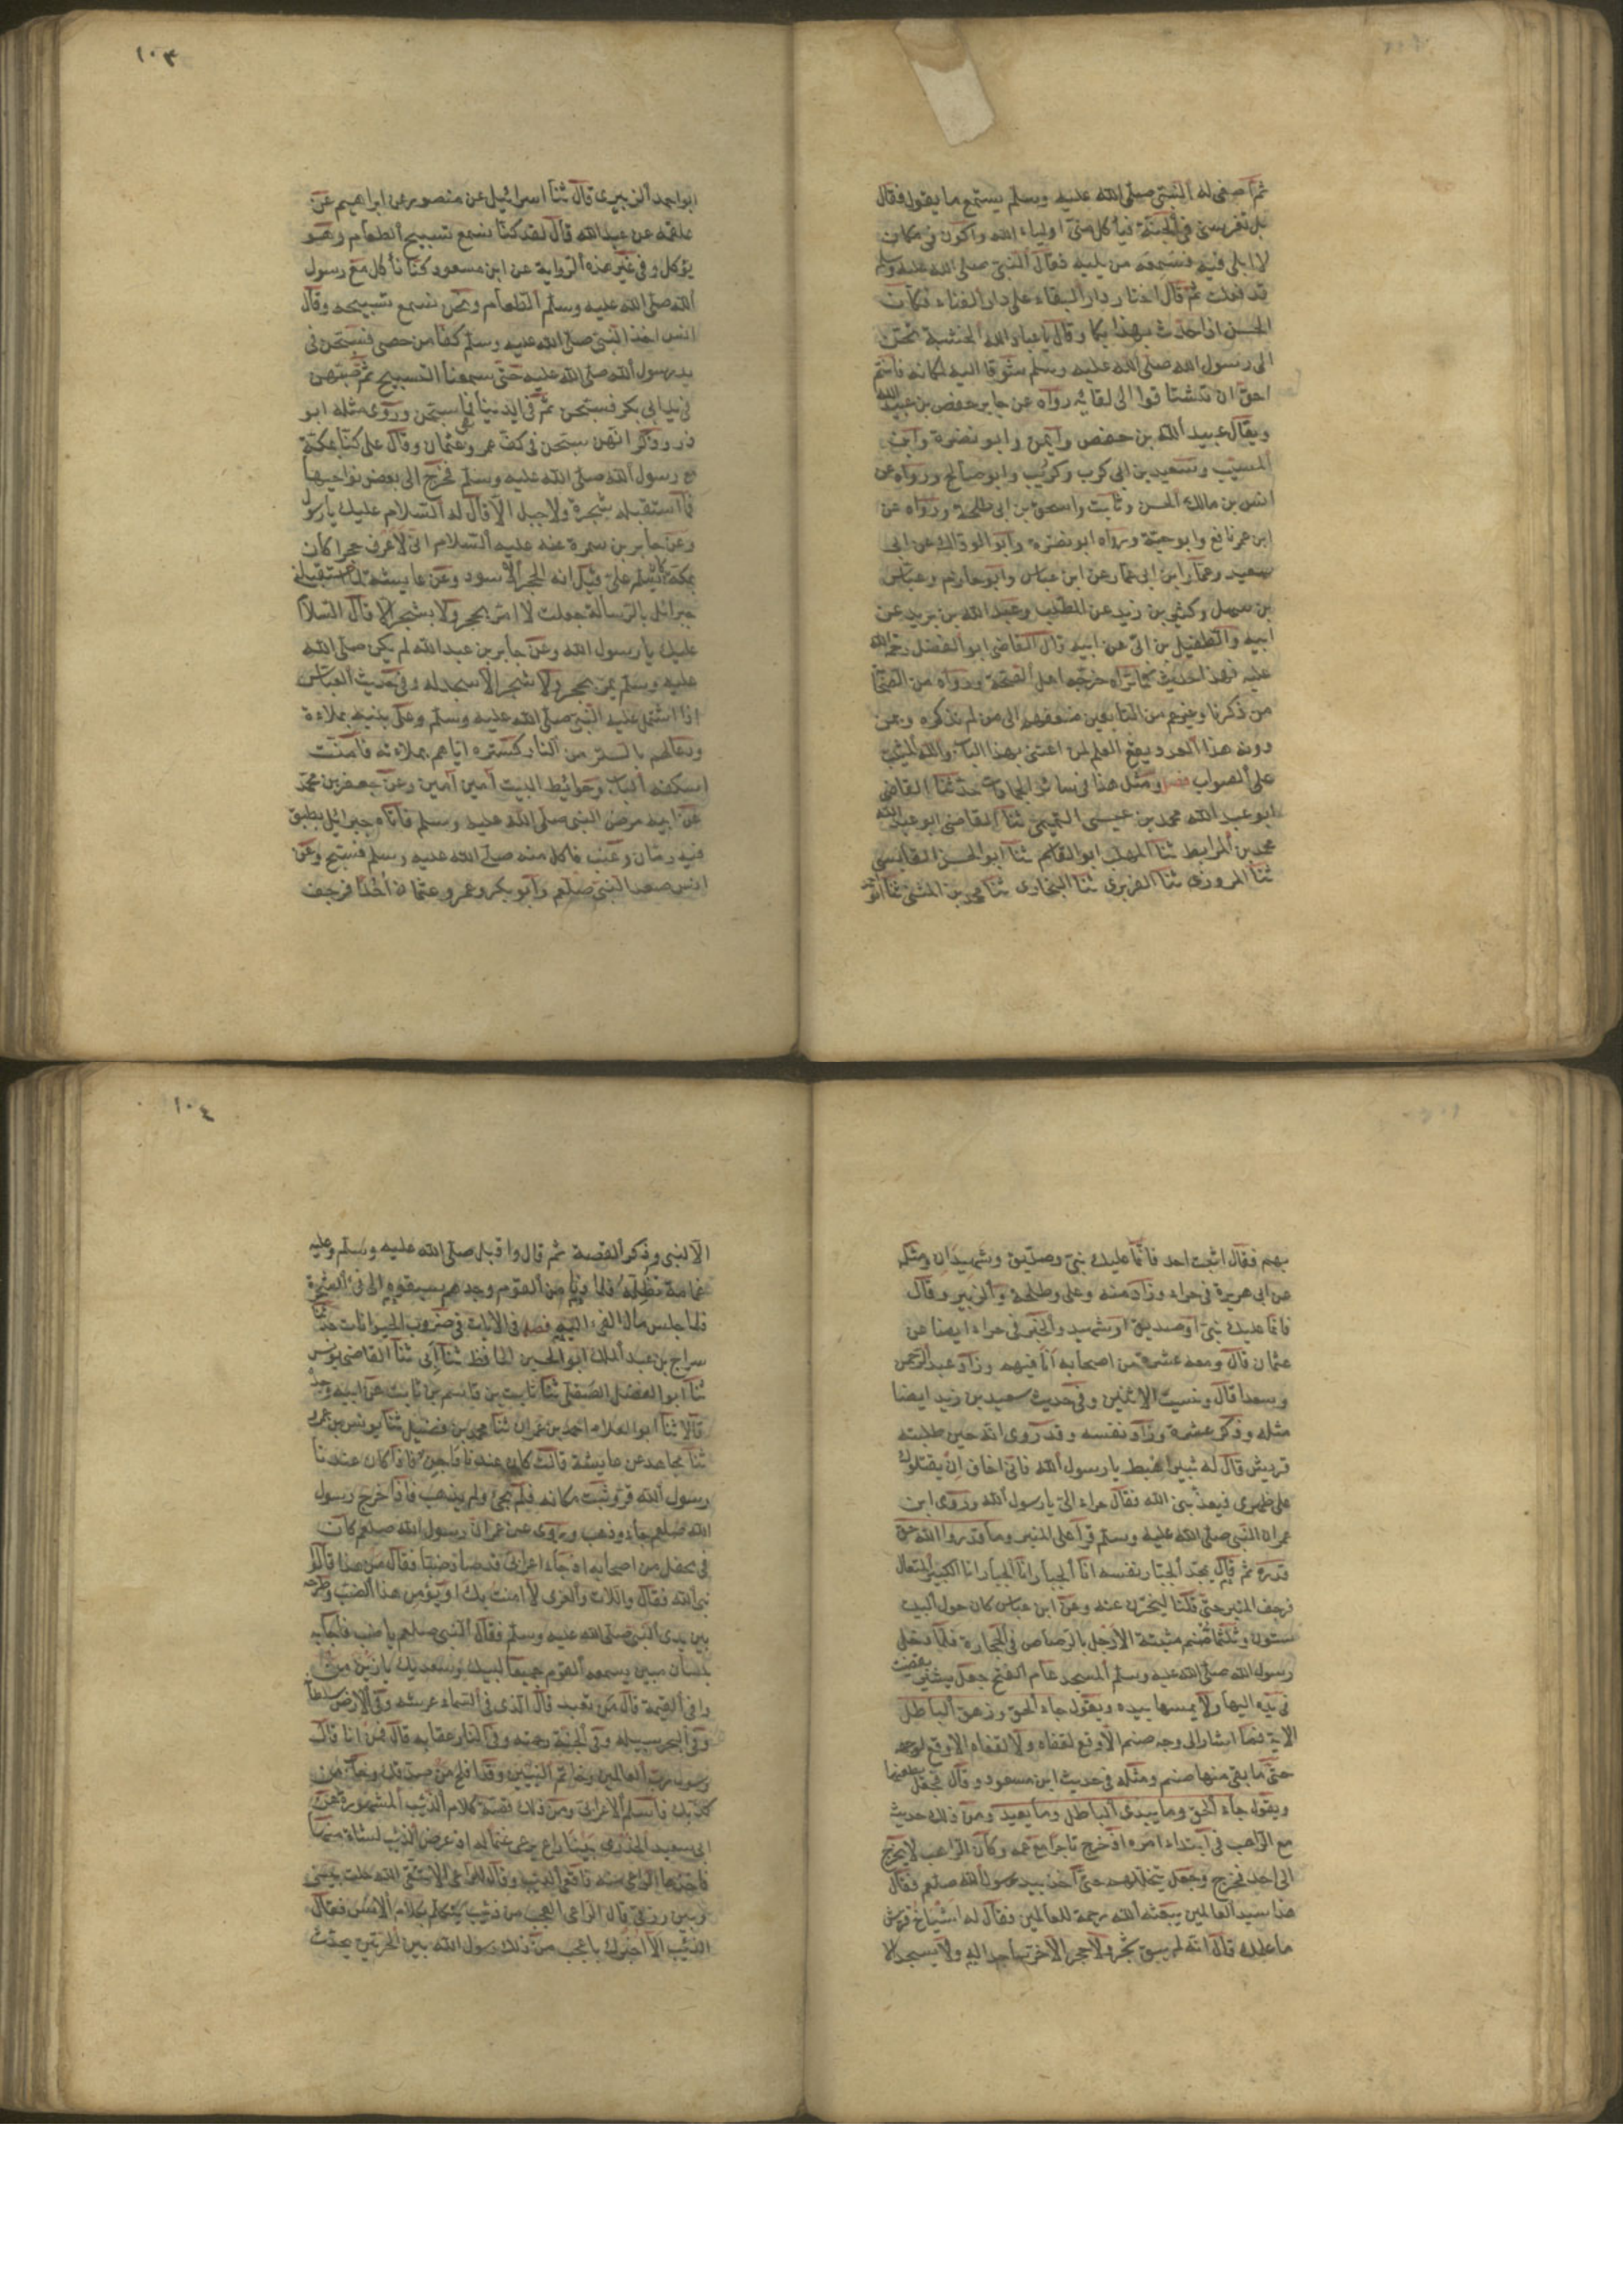 ثم اصغى له النبى صلى الله عليه وسلم يستمع ما يقول فقال
بل تغرسنى فى الجنة فيأكل منى اولياء الله واكون فى مكان
لا ابلى فيه فسمعه من يليه فقال النبى صلى الله عليه وسلم
قد فعلت ثم قال اختار دار البقاء على دار الفناء فكان
الحسن اذا حدث بهذا بكا وقال يا عباد الله الخشبة تحن
الى رسول الله صلى الله عليه وسلم شوقا اليه لمكانه فانتم
احق ان تشتاقوا الى لقائه رواه عن جابر حفص بن عبيد الله
ويقال عبيد الله بن حفص وايمن وابو نضرة وابن
المسيب وسعيد بن ابى كرب وكريب وابو صالح ورواه عن
انس بن مالك الحسن وثابت واسحق بن ابى طلحة ورواه عن
ابن عمر نافع وابو حية ورواه ابو نضرة وابو الوداك عن ابى
سعيد وعمار ابن ابى عمار عن ابن عباس وابو حازم وعباس
بن سهل وكثير بن زيد عن المطلب وعبد الله بن بريد عن
ابيه والطفيل بن ابى عن ابيه قال القاضى ابو الفضل رحمه الله
عليه فهذا حديث كما تراه خرجه اهل الصحة ورواه من الصحا
من ذكرنا وغيرهم من التابعين ضعفهم الى من لم نذكره وبمن
دونه هذا العدد يقع العلم لمن اعتنى بهذا الباب والله المثبت
على الصواب فصل ومثل هذا فى سائر الجمادات حدثنا القاضى
ابو عبد الله محمد بن عيسى التميمى ثنا القاضى ابو عبد الله
محمد بن المرابط ثنا المهلب ابو القاسم ثنا ابو الحسن القابسى
ثنا المروزى ثنا الفربرى ثنا البخارى ثنا محمد بن المثنى ثنا ابو
١٠٣
ابو احمد الزبيرى قال ثنا اسرائيل عن منصور عن ابراهيم عن
علقمة عن عبد الله قال لقد كنا نسمع تسبيح الطعام وهو
يؤكل وفى غير هذه الرواية عن ابن مسعود كنا نأكل مع رسول
الله صلى الله عليه وسلم الطعام ونحن نسمع تسبيحه وقال
انس اخذ النبى صلى الله عليه وسلم كفا من حصى فسبحن فى
يد رسول الله صلى الله عليه حتى سمعنا التسبيح ثم صبهن
فى يد ابى بكر فسبحن ثم فى ايدينا فما سبحن وروى مثله ابو
ذر وذكر انهن سبحن فى كف عمر وعثمان وقال على كنا بمكة
مع رسول الله صلى الله عليه وسلم فخرج الى بعض نواحيها
فما استقبله شجرة ولا جبل الا قال له السلام عليك يا رسول
وعن جابر بن سمرة عنه عليه السلام انى لاعرف حجرا كان
بمكة كان يسلم على قيل انه الحجر الاسود وعن عايشة لما استقبلنى
جبرائل بالرسالة جعلت لا امر بحجر ولا بشجر الا قال السلام
عليك يا رسول الله وعن جابر بن عبد الله لم يكن صلى الله
عليه وسلم يمر بحجر ولا شجر الا سجد له وفى حديث العباس
اذا اشتمل عليه النبى صلى الله عليه وسلم وعلى بنيه بملاءة
ودعا لهم بالستر من النار كستره اياهم بملاءته فامنت
اسكفة الباب وحوائط البيت آمين آمين وعن جعفر بن محمد
عن ابيه مرض النبى صلى الله عليه وسلم فأتاه جبرائل بطبق
فيه رمان وعنب فاكل منه صلى الله عليه وسلم فسبح وعن
انس صعد النبى صلعم وابو بكر وعمر وعثمان احدا فرجف
بهم فقال اثبت احد فانما عليك نبى وصديق وشهيدان ومثله
عن ابى هريرة فى حراء وزاد معه وعلى وطلحة والزبير وقال
فانما عليك نبى او صديق او شهيد والخبر فى حراء ايضا عن
عثمان قال ومعه عشرة من اصحابه انا فيهم وزاد عبد الرحمن
وسعدا قال ونسيت الاثنين وفى حديث سعيد بن زيد ايضا
مثله وذكر عشرة وزاد نفسه وقد روى انه حين طلبته
قريش قال له ثبير اهبط يا رسول الله فانى اخاف ان يقتلوك
على ظهرى فيعذبنى الله فقال حراء الى يا رسول الله وروى ابن
عمر ان النبى صلى الله عليه وسلم قرأ على المنبر وما قدروا الله حق
قدره ثم قال يمجد الجبار نفسه انا الجبار انا الجبار انا الكبير المتعال
فرجف المنبر حتى قلنا ليخرن عنه وعن ابن عباس كان حول البيت
ستون وثلثمائة صنم مثبتة الارجل بالرصاص فى الحجارة فلما دخل
رسول الله صلى الله عليه وسلم المسجد عام الفتح جعل يشير بقضيب
فى يده اليها ولا يمسها بيده ويقول جاء الحق وزهق الباطل
الاية فما اشار الى وجه صنم الا وقع لقفاه ولا لقفاه الا وقع لوجهه
حتى ما بقى منها صنم ومثله فى حديث ابن مسعود وقال فجعل يطعنها
ويقول جاء الحق وما يبدئ الباطل وما يعيد ومن ذلك حديثه
مع الراهب فى ابتداء امره اذ خرج تاجرا مع عمه وكان الراهب لا يخرج
الى احد فخرج وجعل يتخللهم حتى اخذ بيد رسول الله صلعم فقال
هذا سيد العالمين يبعثه الله رحمة للعالمين فقال له اشياخ قريش
ما علمك قال انه لم يبق شجر ولا حجر الا خر ساجدا له ولا يسجد الا
١٠٤
الا لنبى وذكر القصة ثم قال واقبل صلى الله عليه وسلم وعليه
غمامة تظله فلما دنا من القوم وجدهم سبقوه الى فئ الشجرة
فلما جلس مال الفئ اليه فصل فى الايات فى ضروب الحيوانات حدثنا
سراج بن عبد الملك ابو الحسين الحافظ ثنا ابى ثنا القاضى يونس
ثنا ابو الفضل الصقلى ثنا ثابت بن قاسم بن ثابت عن ابيه وجده
قالا ثنا ابو العلاء احمد بن عمران ثنا محمد بن فضيل ثنا يونس بن عمرو
ثنا مجاهد عن عايشة قالت كان عندنا داجن فاذا كان عندنا
رسول الله قر وثبت مكانه فلم يجئ ولم يذهب فاذا خرج رسول
الله صلعم جاء وذهب وروى عن عمر ان رسول الله صلعم كان
فى محفل من اصحابه اذ جاء اعرابى قد صاد ضبا فقال من هذا قالوا
نبى الله فقال واللات والعزى لا امنت بك او يؤمن هذا الضب وطرحه
بين يدى النبى صلى الله عليه وسلم فقال النبى صلعم يا ضب فاجابه
بلسان مبين يسمعه القوم جميعا لبيك وسعديك يا زين من
وافى القيمة قال من تعبد قال الذى فى السماء عرشه وفى الارض سلطانه
وفى البحر سبيله وفى الجنة رحمته وفى النار عقابه قال فمن انا قال
رسول رب العالمين وخاتم النبيين وقد افلح من صدقك وخاب من
كذبك فاسلم الاعرابى ومن ذلك قصة كلام الذئب المشهورة عن
ابى سعيد الخدرى بينا راع يرعى غنما له اذ عرض الذئب لشاة منها
فاخذها الراعى منه فاقعى الذئب وقال للراعى الا تتقى الله حلت بينى
وبين رزقى قال الراعى العجب من ذئب يتكلم بكلام الانس فقال
الذئب الا اخبرك باعجب من ذلك رسول الله بين الحرتين يحدث